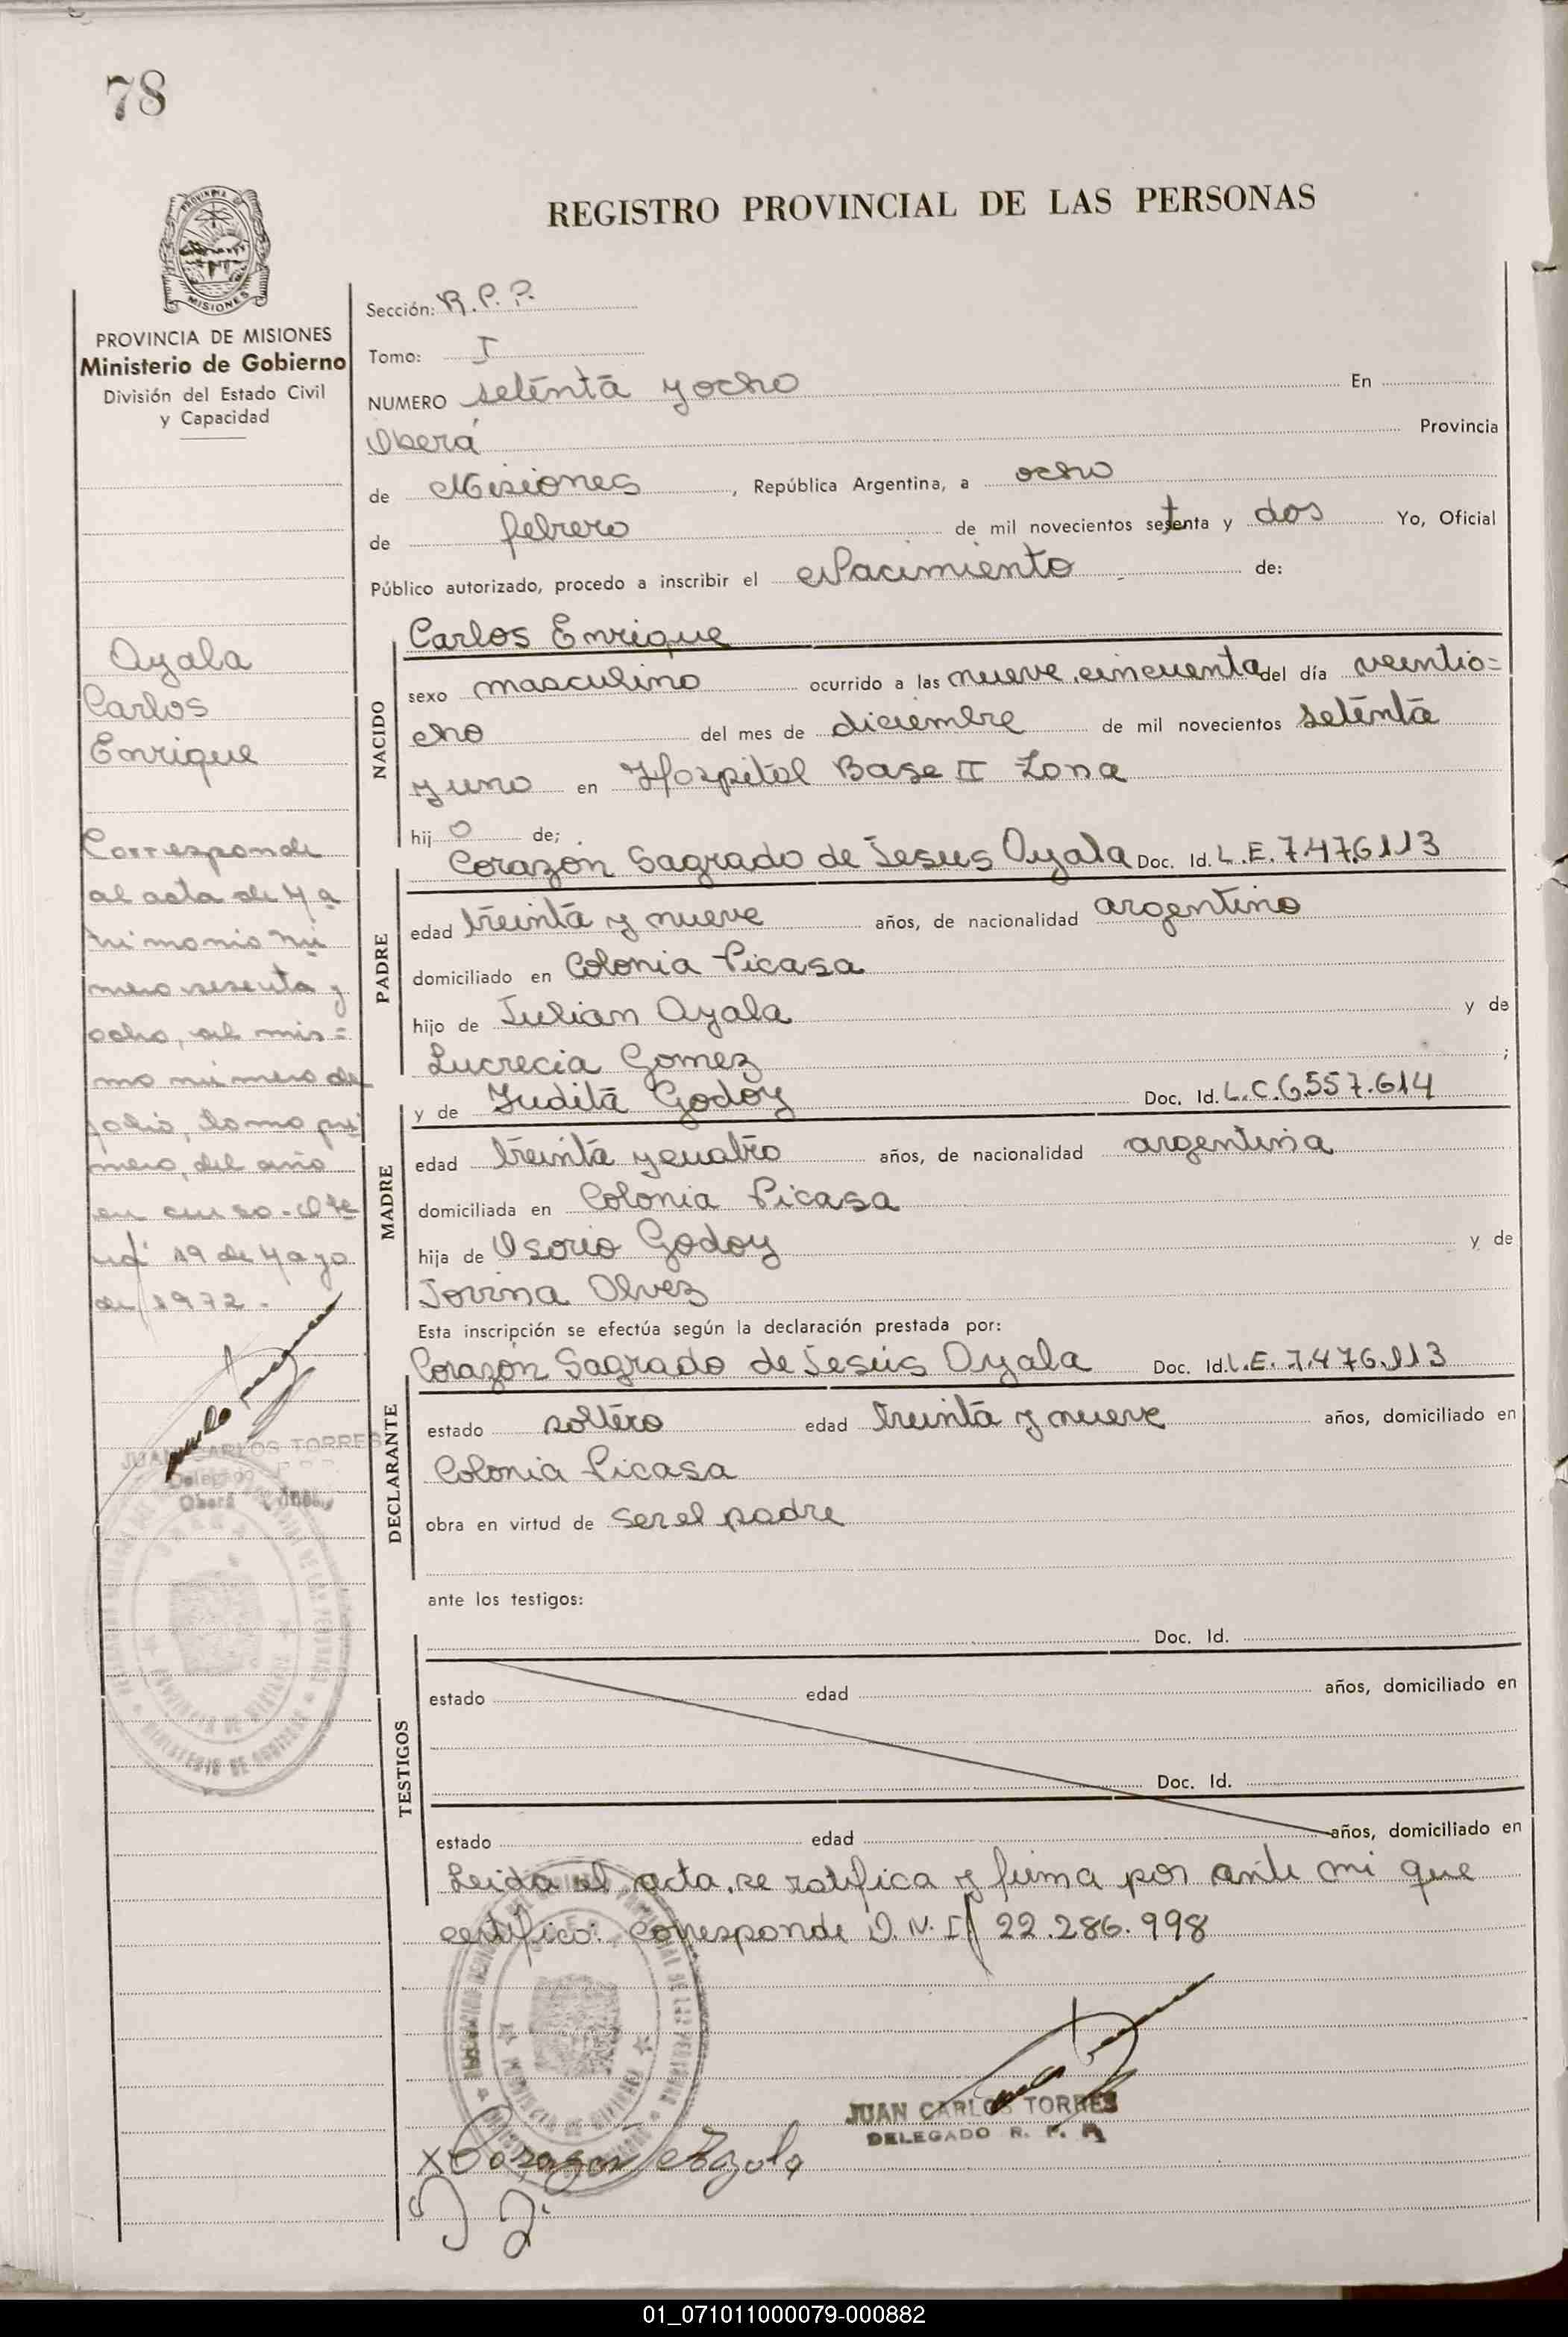 78
REGISTRO PROVINCIAL DE LAS PERSONAS
MISIONES
PROVINCIA DE MISIONES
Ministerio de Gobierno
División del Estado Civil
y Capacidad
Sección: R.P.P.
Tomo: I
NUMERO setenta y ocho En
Oberá Provincia
de Misiones, República Argentina, a ocho
de febrero de mil novecientos setenta y dos Yo, Oficial
Público autorizado, procedo a inscribir el Nacimiento de:
Ayala
Carlos
Enrique
Corresponde
al acta de Ma
trimonio nú
mero sesenta y
ocho, al mis=
mo número de
folio, tomo pri
mero, del año
en curso.
19 de Mayo
de 1972.
JUAN CARLOS TORRES
Delegado
Oberá
NACIDO
Carlos Enrique
sexo masculino ocurrido a las nueve, cincuenta del día veintio=
cho del mes de diciembre de mil novecientos setenta
y uno en Hospital Base II Zona
hij o de;
PADRE
Corazón Sagrado de Jesus Ayala Doc. Id. L.E. 7.476.113
edad treinta y nueve años, de nacionalidad argentino
domiciliado en Colonia Picasa
hijo de Julian Ayala y de
Lucrecia Gomez ;
MADRE
y de Judita Godoy Doc. Id. L.C. 6.557.614
edad treinta y cuatro años, de nacionalidad argentina
domiciliada en Colonia Picasa
hija de Osorio Godoy y de
Jovina Olvez
Esta inscripción se efectúa según la declaración prestada por:
DECLARANTE
Corazón Sagrado de Jesús Ayala Doc. Id. L.E. 7.476.113
estado soltero edad treinta y nueve años, domiciliado en
Colonia Picasa
obra en virtud de ser el padre
ante los testigos:
TESTIGOS
Doc. Id.
estado edad años, domiciliado en
Doc. Id.
estado edad años, domiciliado en
Leida el acta, se ratifica y firma por ante mi que
certifico: Corresponde D.N.I. 22.286.998
JUAN CARLOS TORRES
DELEGADO R. P. P.
X Corazon Ayala
01_071011000079-000882